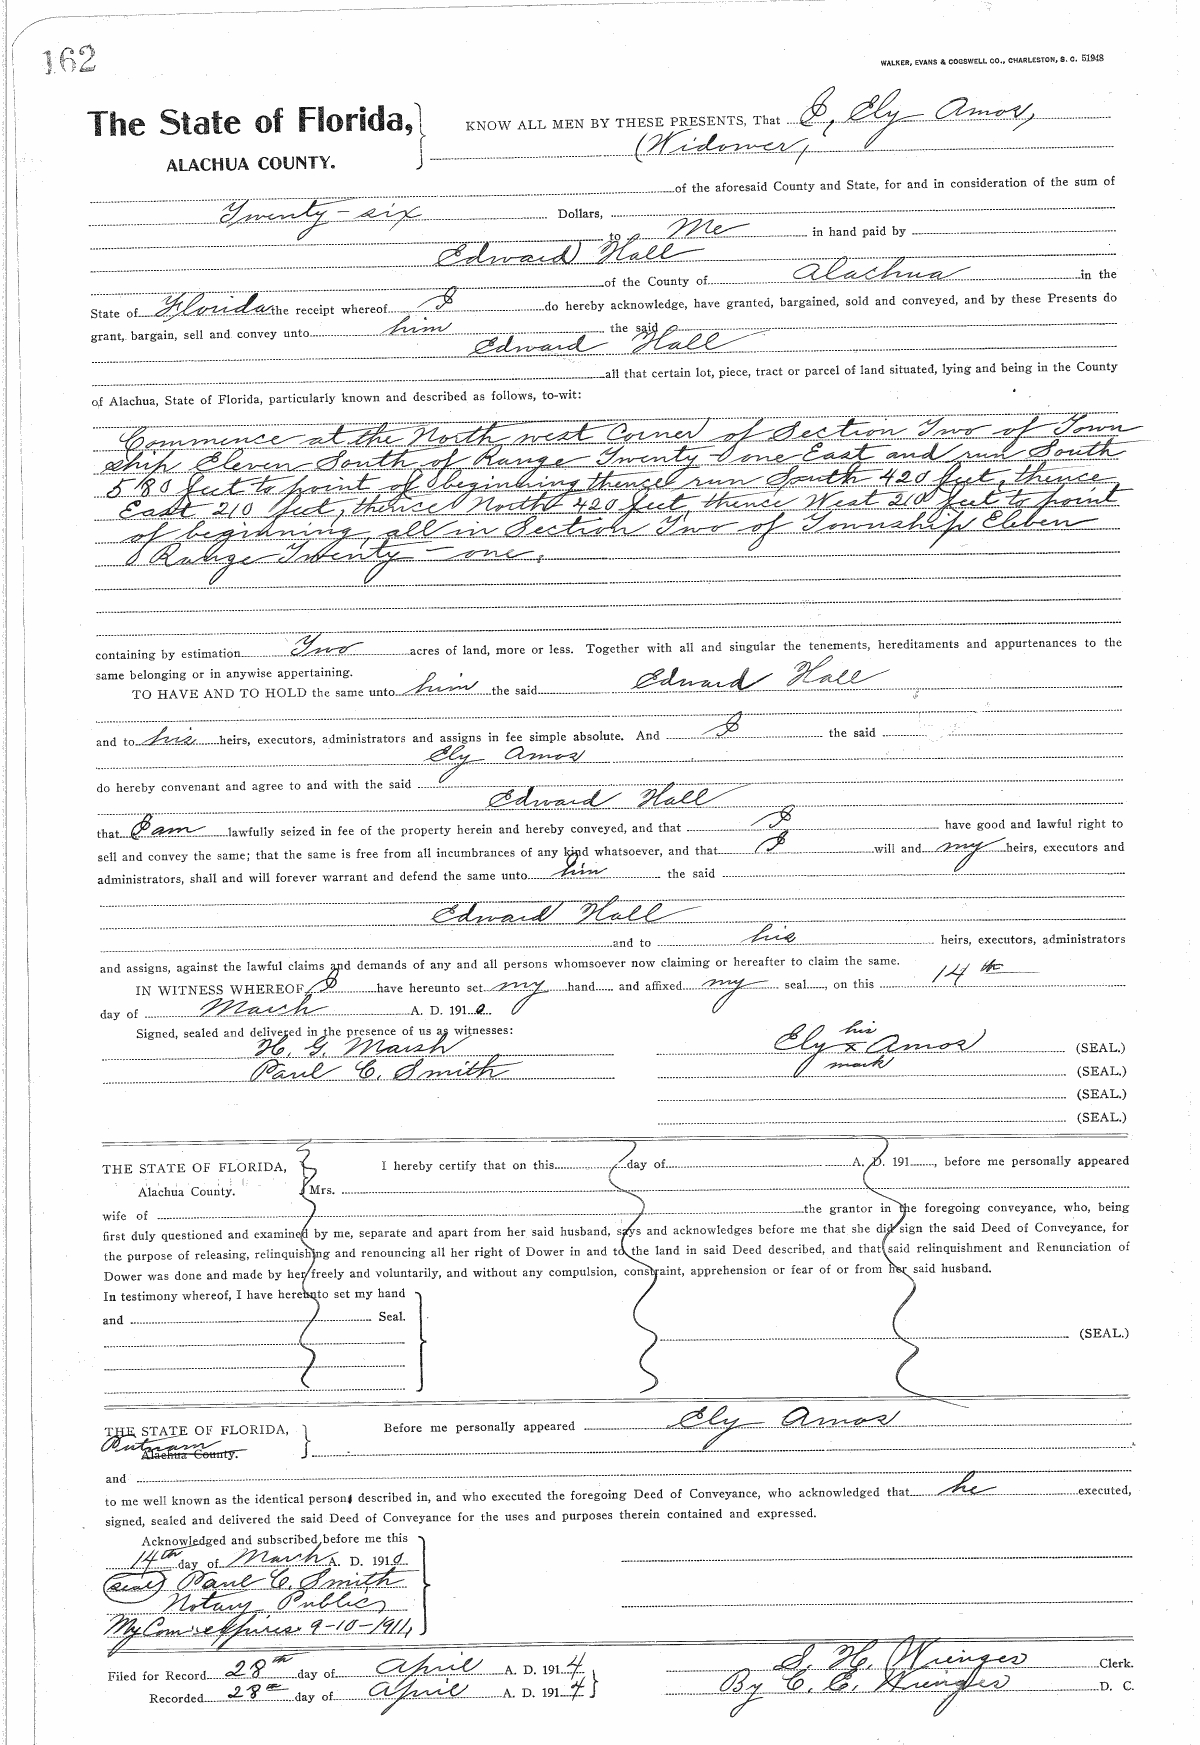 162
WALKER, EVANS & COGSWELL CO., CHARLESTON, S. C. 51948
The State of Florida,
ALACHUA COUNTY.
KNOW ALL MEN BY THESE PRESENTS, That I, Ely Amos,
(Widower,
of the aforesaid County and State, for and in consideration of the sum of
Twenty-six Dollars,
to Me in hand paid by
Edward Hall
of the County of Alachua in the
State of Florida the receipt whereof I do hereby acknowledge, have granted, bargained, sold and conveyed, and by these Presents do
grant, bargain, sell and convey unto him the said
Edward Hall
all that certain lot, piece, tract or parcel of land situated, lying and being in the County
of Alachua, State of Florida, particularly known and described as follows, to-wit:
Commence at the North west Corner of Section Two of Town
ship Eleven South of Range Twenty-one East and run South
580 feet to point of beginning thence run South 420 feet, thence
East 210 feet, thence North 420 feet, thence West 210 feet to point
of beginning, all in Section Two of Township Eleven
Range Twenty-one,
containing by estimation Two acres of land, more or less. Together with all and singular the tenements, hereditaments and appurtenances to the
same belonging or in anywise appertaining.
TO HAVE AND TO HOLD the same unto him the said Edward Hall
and to his heirs, executors, administrators and assigns in fee simple absolute. And I the said
Ely Amos
do hereby convenant and agree to and with the said
Edward Hall
that I am lawfully seized in fee of the property herein and hereby conveyed, and that I have good and lawful right to
sell and convey the same; that the same is free from all incumbrances of any kind whatsoever, and that I will and my heirs, executors and
administrators, shall and will forever warrant and defend the same unto him the said
Edward Hall
and to his heirs, executors, administrators
and assigns, against the lawful claims and demands of any and all persons whomsoever now claiming or hereafter to claim the same.
IN WITNESS WHEREOF, I have hereunto set my hand and affixed my seal, on this 14th
day of March A. D. 1910.
Signed, sealed and delivered in the presence of us as witnesses:
H. G. Marsh
Paul C. Smith
his
Ely x Amos (SEAL.)
mark (SEAL.)
(SEAL.)
(SEAL.)
THE STATE OF FLORIDA,
Alachua County.
I hereby certify that on this day of A. D. 191 , before me personally appeared
Mrs.
wife of the grantor in the foregoing conveyance, who, being
first duly questioned and examined by me, separate and apart from her said husband, says and acknowledges before me that she did sign the said Deed of Conveyance, for
the purpose of releasing, relinquishing and renouncing all her right of Dower in and to the land in said Deed described, and that said relinquishment and Renunciation of
Dower was done and made by her freely and voluntarily, and without any compulsion, constraint, apprehension or fear of or from her said husband.
In testimony whereof, I have hereunto set my hand
and Seal.
(SEAL.)
THE STATE OF FLORIDA,
Putnam
Alachua County.
Before me personally appeared Ely Amos
and
to me well known as the identical person described in, and who executed the foregoing Deed of Conveyance, who acknowledged that he executed,
signed, sealed and delivered the said Deed of Conveyance for the uses and purposes therein contained and expressed.
Acknowledged and subscribed before me this
14th day of March A. D. 1910.
(seal) Paul C. Smith
Notary Public,
My Com: expires 9-10-1911,
Filed for Record 28th day of April A. D. 1914
Recorded 28th day of April A. D. 1914
S. H. Wienges Clerk.
By C. E. Wienges D. C.